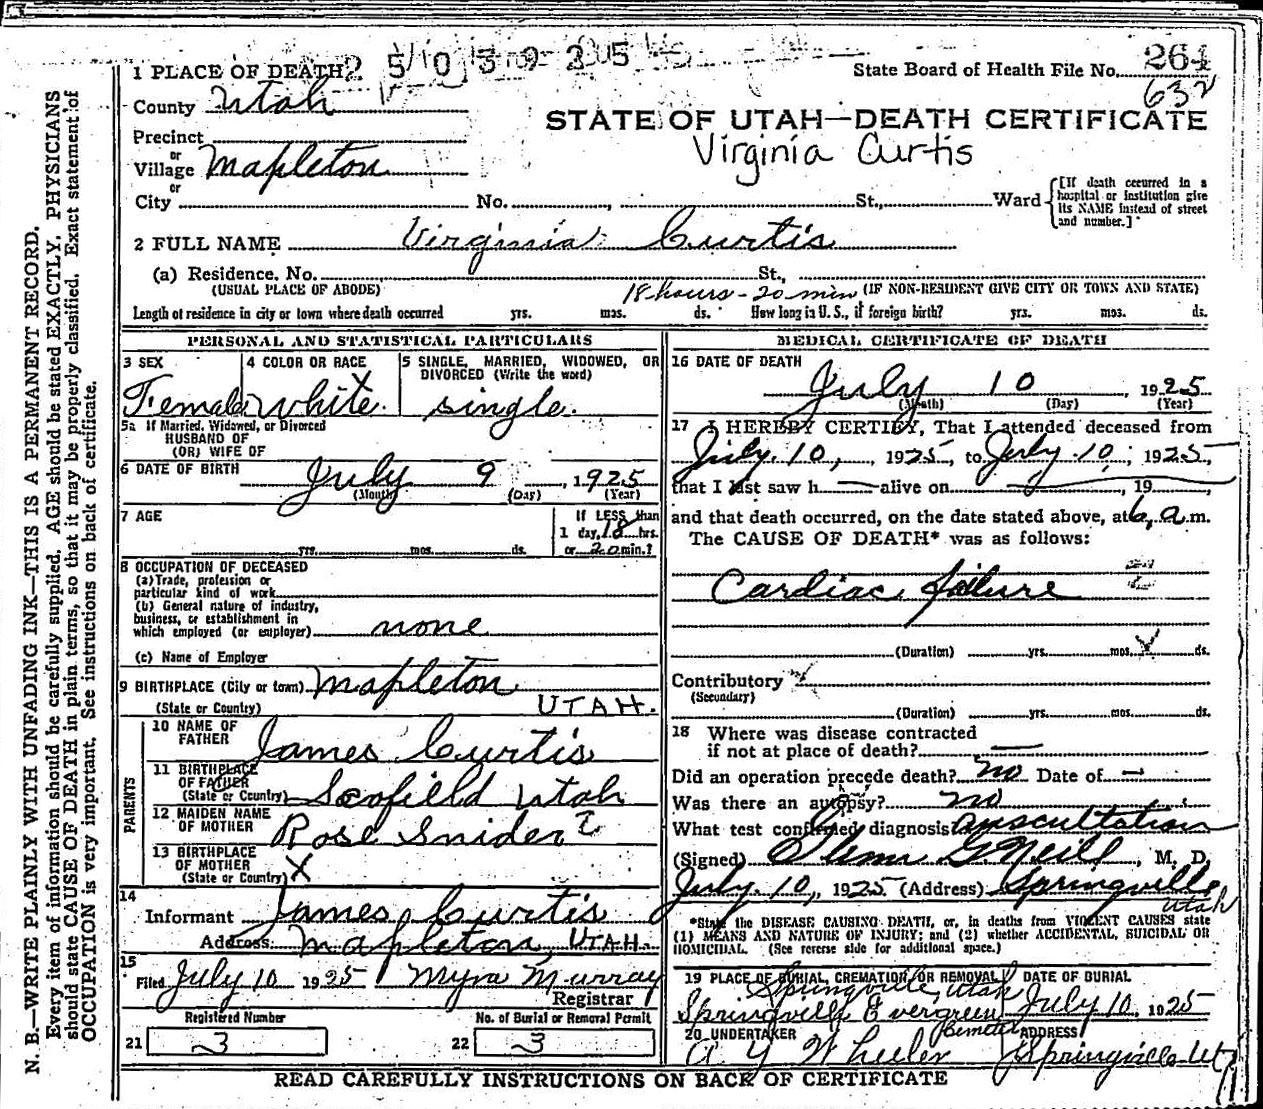 1 PLACE OF DEATH 2 5 0 3 9 2 5
State Board of Health File No. 264
632
County Utah
STATE OF UTAH—DEATH CERTIFICATE
Virginia Curtis
Precinct
or
Village Mapleton
or
City No. , St., Ward
[If death occurred in a
hospital or institution give
its NAME instead of street
and number.]
2 FULL NAME Virginia Curtis
(a) Residence. No. St.,
(USUAL PLACE OF ABODE) 18 hours - 20 min (IF NON-RESIDENT GIVE CITY OR TOWN AND STATE)
Length of residence in city or town where death occurred yrs. mos. ds. How long in U. S., if foreign birth? yrs. mos. ds.
PERSONAL AND STATISTICAL PARTICULARS
3 SEX
Female
4 COLOR OR RACE
White
5 SINGLE, MARRIED, WIDOWED, OR
DIVORCED (Write the word)
single.
5a If Married, Widowed, or Divorced
HUSBAND OF
(OR) WIFE OF
6 DATE OF BIRTH July 9, 1925
(Month) (Day) (Year)
7 AGE
yrs. mos. ds.
If LESS than
1 day, 18 hrs.
or 20 min.?
8 OCCUPATION OF DECEASED
(a) Trade, profession or
particular kind of work
(b) General nature of industry,
business, or establishment in
which employed (or employer) none
(c) Name of Employer
9 BIRTHPLACE (City or town) Mapleton
(State or Country) UTAH.
PARENTS
10 NAME OF
FATHER James Curtis
11 BIRTHPLACE
OF FATHER
(State or Country) Scofield Utah
12 MAIDEN NAME
OF MOTHER Rose Snider ?
13 BIRTHPLACE
OF MOTHER
(State or Country) X
14
Informant James Curtis
Address Mapleton, UTAH.
15
Filed July 10 1925 Myra Murray
Registrar
Registered Number
21 3
No. of Burial or Removal Permit
22 3
MEDICAL CERTIFICATE OF DEATH
16 DATE OF DEATH
July 10, 1925
(Month) (Day) (Year)
17 I HEREBY CERTIFY, That I attended deceased from
July 10, 1925, to July 10, 1925,
that I last saw h — alive on , 19 ,
and that death occurred, on the date stated above, at 6 a.m.
The CAUSE OF DEATH* was as follows:
Cardiac failure
(Duration) yrs. mos. ds.
Contributory
(Secondary)
(Duration) yrs. mos. ds.
18 Where was disease contracted
if not at place of death? —
Did an operation precede death? no Date of —
Was there an autopsy? no
What test confirmed diagnosis auscultation
(Signed) Glenn G Neill, M. D.
July 10, 1925 (Address) Springville
Utah
*State the DISEASE CAUSING DEATH, or, in deaths from VIOLENT CAUSES state
(1) MEANS AND NATURE OF INJURY; and (2) whether ACCIDENTAL, SUICIDAL OR
HOMICIDAL. (See reverse side for additional space.)
19 PLACE OF BURIAL, CREMATION, OR REMOVAL
Springville, Utah
Springville Evergreen
Cemetery
DATE OF BURIAL
July 10, 1925
20 UNDERTAKER
A Y Wheeler
ADDRESS
Springville Ut
READ CAREFULLY INSTRUCTIONS ON BACK OF CERTIFICATE
N. B.—WRITE PLAINLY WITH UNFADING INK—THIS IS A PERMANENT RECORD.
Every item of information should be carefully supplied. AGE should be stated EXACTLY. PHYSICIANS
should state CAUSE OF DEATH in plain terms, so that it may be properly classified. Exact statement of
OCCUPATION is very important. See instructions on back of certificate.